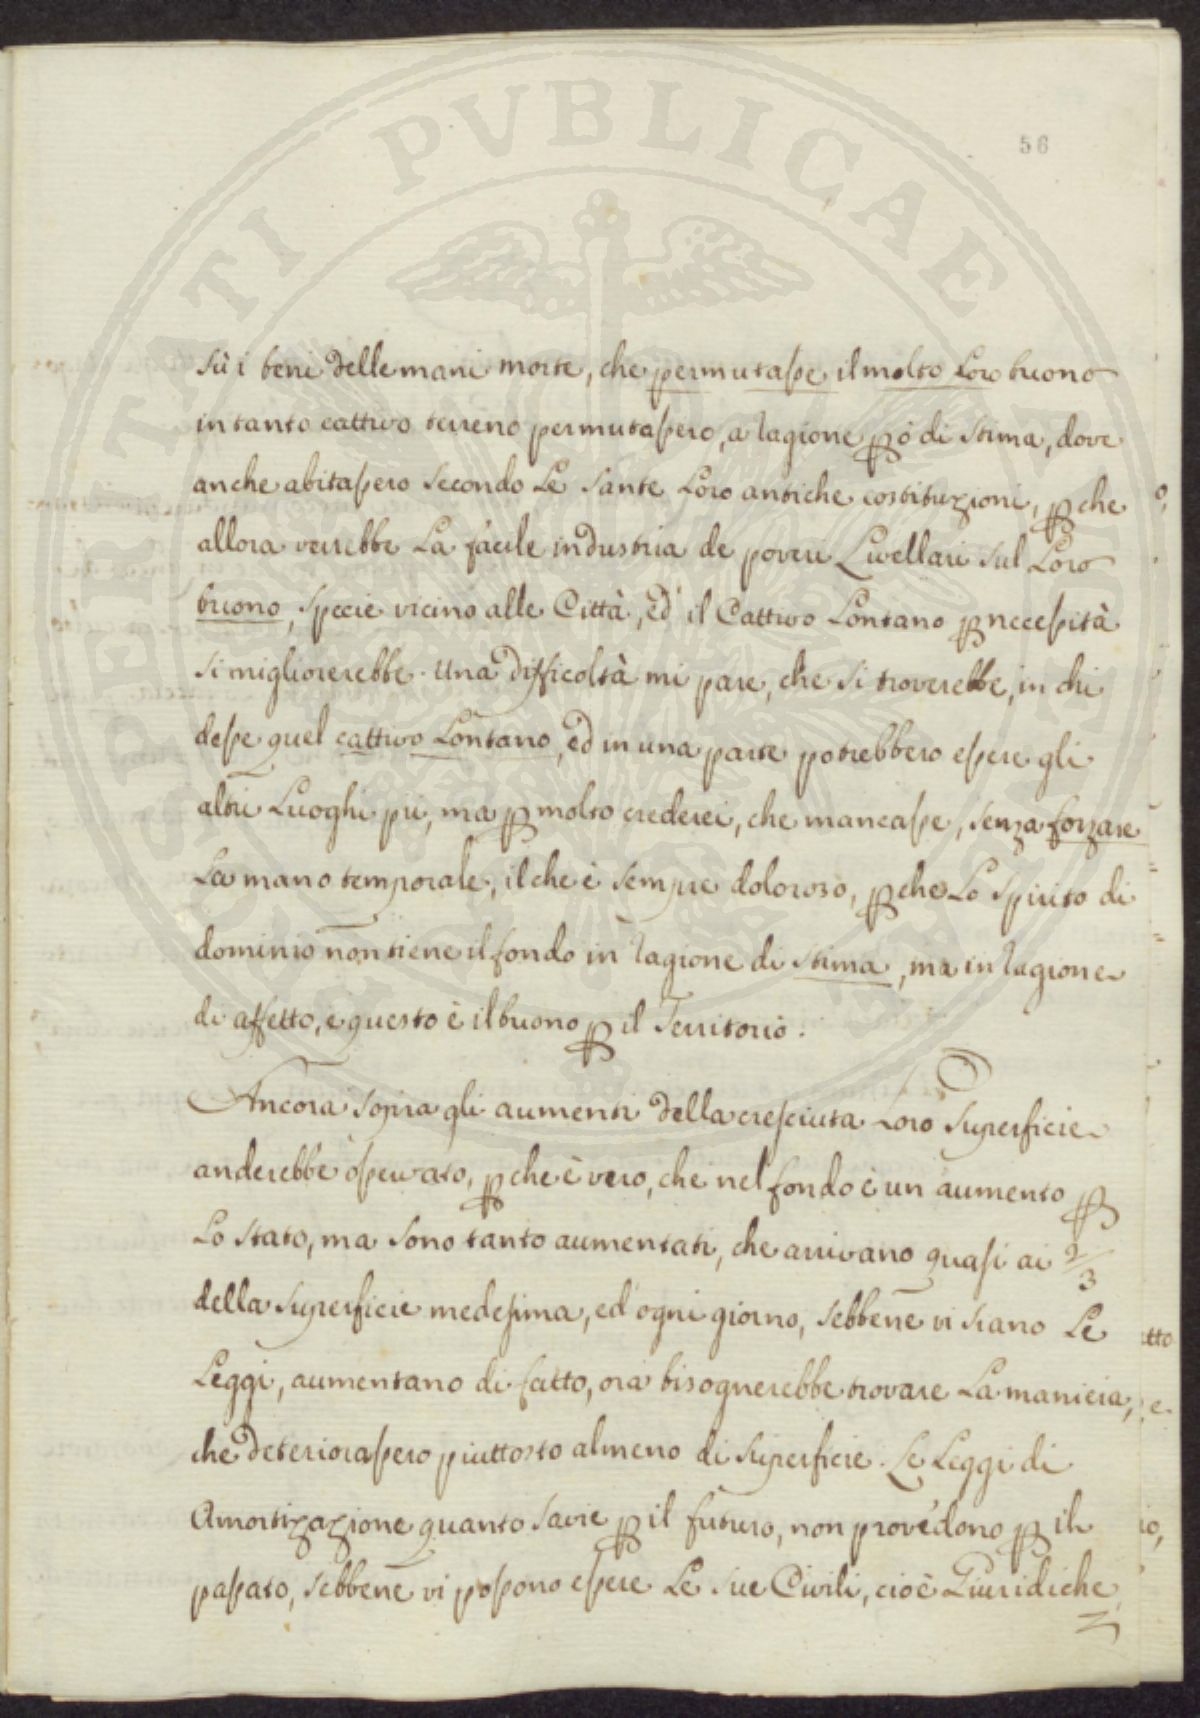 PROSPERITATI PUBLICAE
56
sù i beni delle mani morte, che permutasse il molto Loro buono
in tanto cattivo terreno permutassero, a ragione però di stima, dove
anche abitassero secondo Le Sante Loro antiche costituzioni, perche
allora verrebbe La facile industria de poveri Livellari sul Loro
buono, specie vicino alle Città, ed il Cattivo Lontano per necessità
si migliorerebbe. Una difficoltà mi pare, che si troverebbe, in chi
desse quel cattivo Lontano, ed in una parte potrebbero essere gli
altri Luoghi pii, ma per molto crederei, che mancasse, senza forzare
La mano temporale, il che è sempre doloroso, perche Lo spirito di
dominio non tiene il fondo in ragione di stima, ma in ragione
di affetto, e questo è il buono per il Territorio.
Ancora sopra gli aumenti della cresciuta Loro Superficie
anderebbe osservato, perche è vero, che nel fondo è un aumento per
Lo stato, ma sono tanto aumentati, che arrivano quasi ai 2/3
della superficie medesima, ed ogni giorno, sebbene vi siano Le
Leggi, aumentano di fatto, ora bisognerebbe trovare La maniera,
che deteriorassero piuttosto almeno di superficie. Le Leggi di
Amortizazione quanto savie per il futuro, non provedono per il
passato, sebbene vi possono essere Le sue Civili, cioè Giuridiche